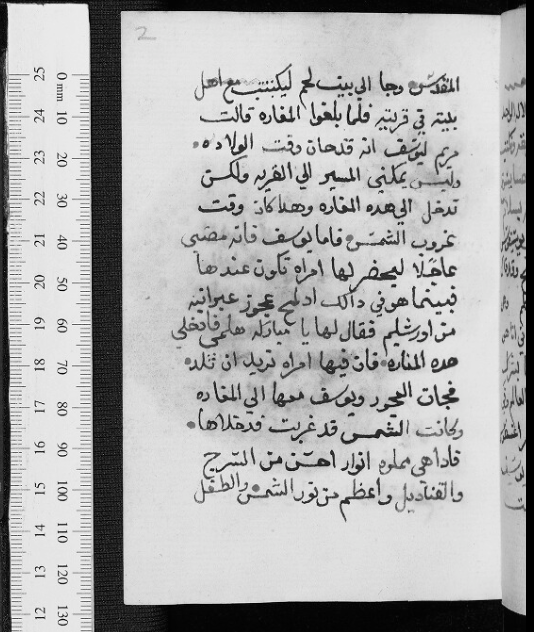 2
المقدس وجا الي بيت لحم ليكتتب مع اهل
بيته في قريته فلما بلغوا المغاره قالت
مريم ليوسف انه قد حان وقت الولاده
وليس يمكني المسير الي القريه ولكن
ندخل الي هده المغاره وهدا كان وقت
غروب الشمس فاما يوسف فانه مضي
عاجلا ليحضر لها امراه تكون عندها
فبينما هو في دالك اد لمح عجوز عبرانيه
من اورشليم فقال لها يا مباركه هلمي فادخلي
هده المغاره فان فيها امراه تريد ان تلد
فجات العجوز ويوسف معها الي المغاره
وكانت الشمس قد غربت فدخلاها
فاداهي مملوه انوار احسن من السرج
والقناديل واعظم من نور الشمس والطفل